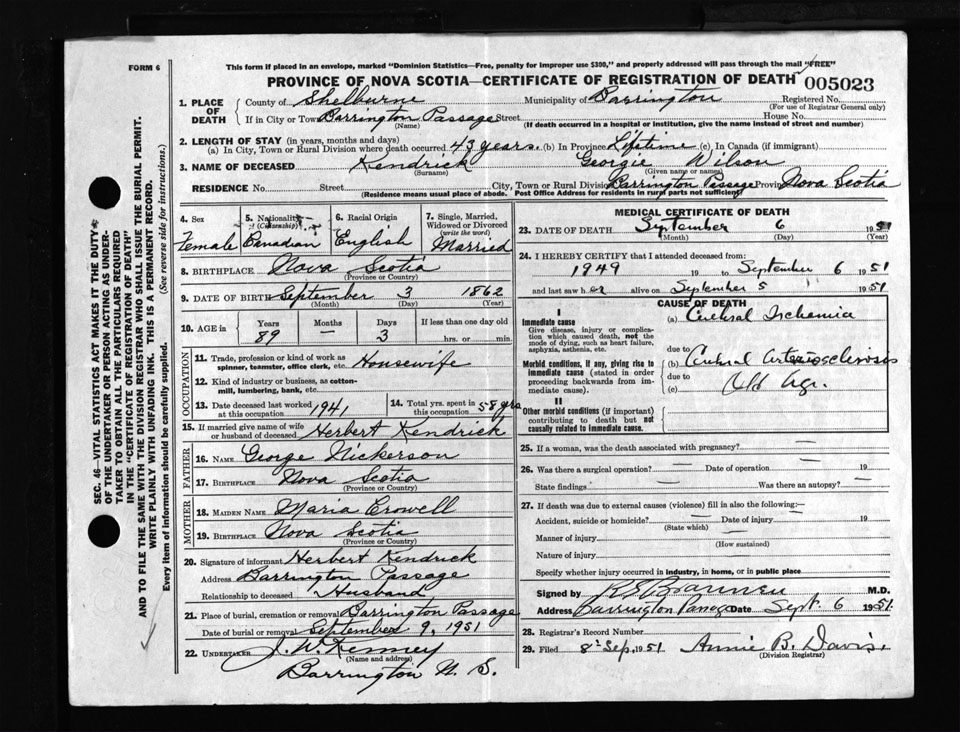 FORM 6
This form if placed in an envelope, marked "Dominion Statistics—Free, penalty for improper use $300," and properly addressed will pass through the mail "FREE"
PROVINCE OF NOVA SCOTIA—CERTIFICATE OF REGISTRATION OF DEATH
005023
1. PLACE OF DEATH { County of Shelburne Municipality of Barrington Registered No.
(For use of Registrar General only)
If in City or Town Barrington Passage Street House No.
(Name) (If death occurred in a hospital or institution, give the name instead of street and number)
2. LENGTH OF STAY (in years, months and days)
(a) In City, Town or Rural Division where death occurred 43 years. (b) In Province Lifetime (c) In Canada (if immigrant)
3. NAME OF DECEASED Kendrick Georgie Wilson
(Surname) (Given name or names)
RESIDENCE No. Street City, Town or Rural Division Barrington Passage Province Nova Scotia
(Residence means usual place of abode. Post Office Address for residents in rural parts not sufficient)
4. Sex 5. Nationality (Citizenship) 6. Racial Origin 7. Single, Married, Widowed or Divorced (write the word)
Female Canadian English Married
8. BIRTHPLACE Nova Scotia
(Province or Country)
9. DATE OF BIRTH September 3 1862
(Month) (Day) (Year)
10. AGE in Years Months Days If less than one day old
89 — 3 hrs. or min.
OCCUPATION
11. Trade, profession or kind of work as spinner, teamster, office clerk, etc. Housewife
12. Kind of industry or business, as cotton-mill, lumbering, bank, etc.
13. Date deceased last worked at this occupation 1941 14. Total yrs. spent in this occupation 58 yrs
15. If married give name of wife or husband of deceased Herbert Kendrick
FATHER
16. NAME George Nickerson
17. BIRTHPLACE Nova Scotia
(Province or Country)
MOTHER
18. MAIDEN NAME Maria Crowell
19. BIRTHPLACE Nova Scotia
(Province or Country)
20. Signature of informant Herbert Kendrick
Address Barrington Passage
Relationship to deceased Husband
21. Place of burial, cremation or removal Barrington Passage
Date of burial or removal September 9, 1951
22. UNDERTAKER J. W. Kenney
(Name and address)
Barrington N. S.
MEDICAL CERTIFICATE OF DEATH
23. DATE OF DEATH September 6 1951
(Month) (Day) (Year)
24. I HEREBY CERTIFY that I attended deceased from:
1949 19 to September 6 1951
and last saw her alive on September 5 1951
CAUSE OF DEATH
I
Immediate cause (a) Cerebral Ischemia
Give disease, injury or complication which caused death, not the mode of dying, such as heart failure, asphyxia, asthenia, etc.
due to
Morbid conditions, if any, giving rise to immediate cause (stated in order proceeding backwards from immediate cause). (b) Cerebral arteriosclerosis
due to
(c) Old Age.
II
Other morbid conditions (if important) contributing to death but not causally related to immediate cause.
25. If a woman, was the death associated with pregnancy? —
26. Was there a surgical operation? — Date of operation — 19
State findings — Was there an autopsy? —
27. If death was due to external causes (violence) fill in also the following:—
Accident, suicide or homicide? — Date of injury — 19
(State which)
Manner of injury
(How sustained)
Nature of injury
Specify whether injury occurred in industry, in home, or in public place
Signed by M.D.
Address Barrington Passage Date Sept. 6 1951.
28. Registrar's Record Number
29. Filed 8th Sep, 1951 Annie B. Davis.
(Division Registrar)
SEC. 46—VITAL STATISTICS ACT MAKES IT THE DUTY
OF THE UNDERTAKER OR PERSON ACTING AS UNDER-
TAKER TO OBTAIN ALL THE PARTICULARS REQUIRED
IN THE "CERTIFICATE OF REGISTRATION OF DEATH"
AND TO FILE THE SAME WITH THE DIVISION REGISTRAR WHO SHALL ISSUE THE BURIAL PERMIT.
WRITE PLAINLY WITH UNFADING INK. THIS IS A PERMANENT RECORD.
Every item of information should be carefully supplied. (See reverse side for instructions.)